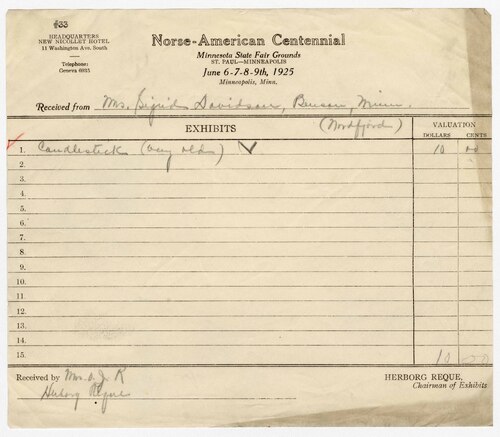 #33
HEADQUARTERS
NEW NICOLLET HOTEL
11 Washington Ave. South
Telephone:
Geneva 6035
Norse-American Centennial
Minnesota State Fair Grounds
ST. PAUL—MINNEAPOLIS
June 6-7-8-9th, 1925
Minneapolis, Minn.
Received from Mrs. Sigrid Davidson, Benson, Minn.
EXHIBITS (Nordfjord) VALUATION
DOLLARS CENTS
1. Candlestick (very old) ✓ 10 00
2.
3.
4.
5.
6.
7.
8.
9.
10.
11.
12.
13.
14.
15. 10 00
Received by Mrs. O. J. R
Herborg Reque
HERBORG REQUE,
Chairman of Exhibits